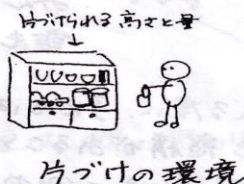 片づけられる高さと量
片づけの環境